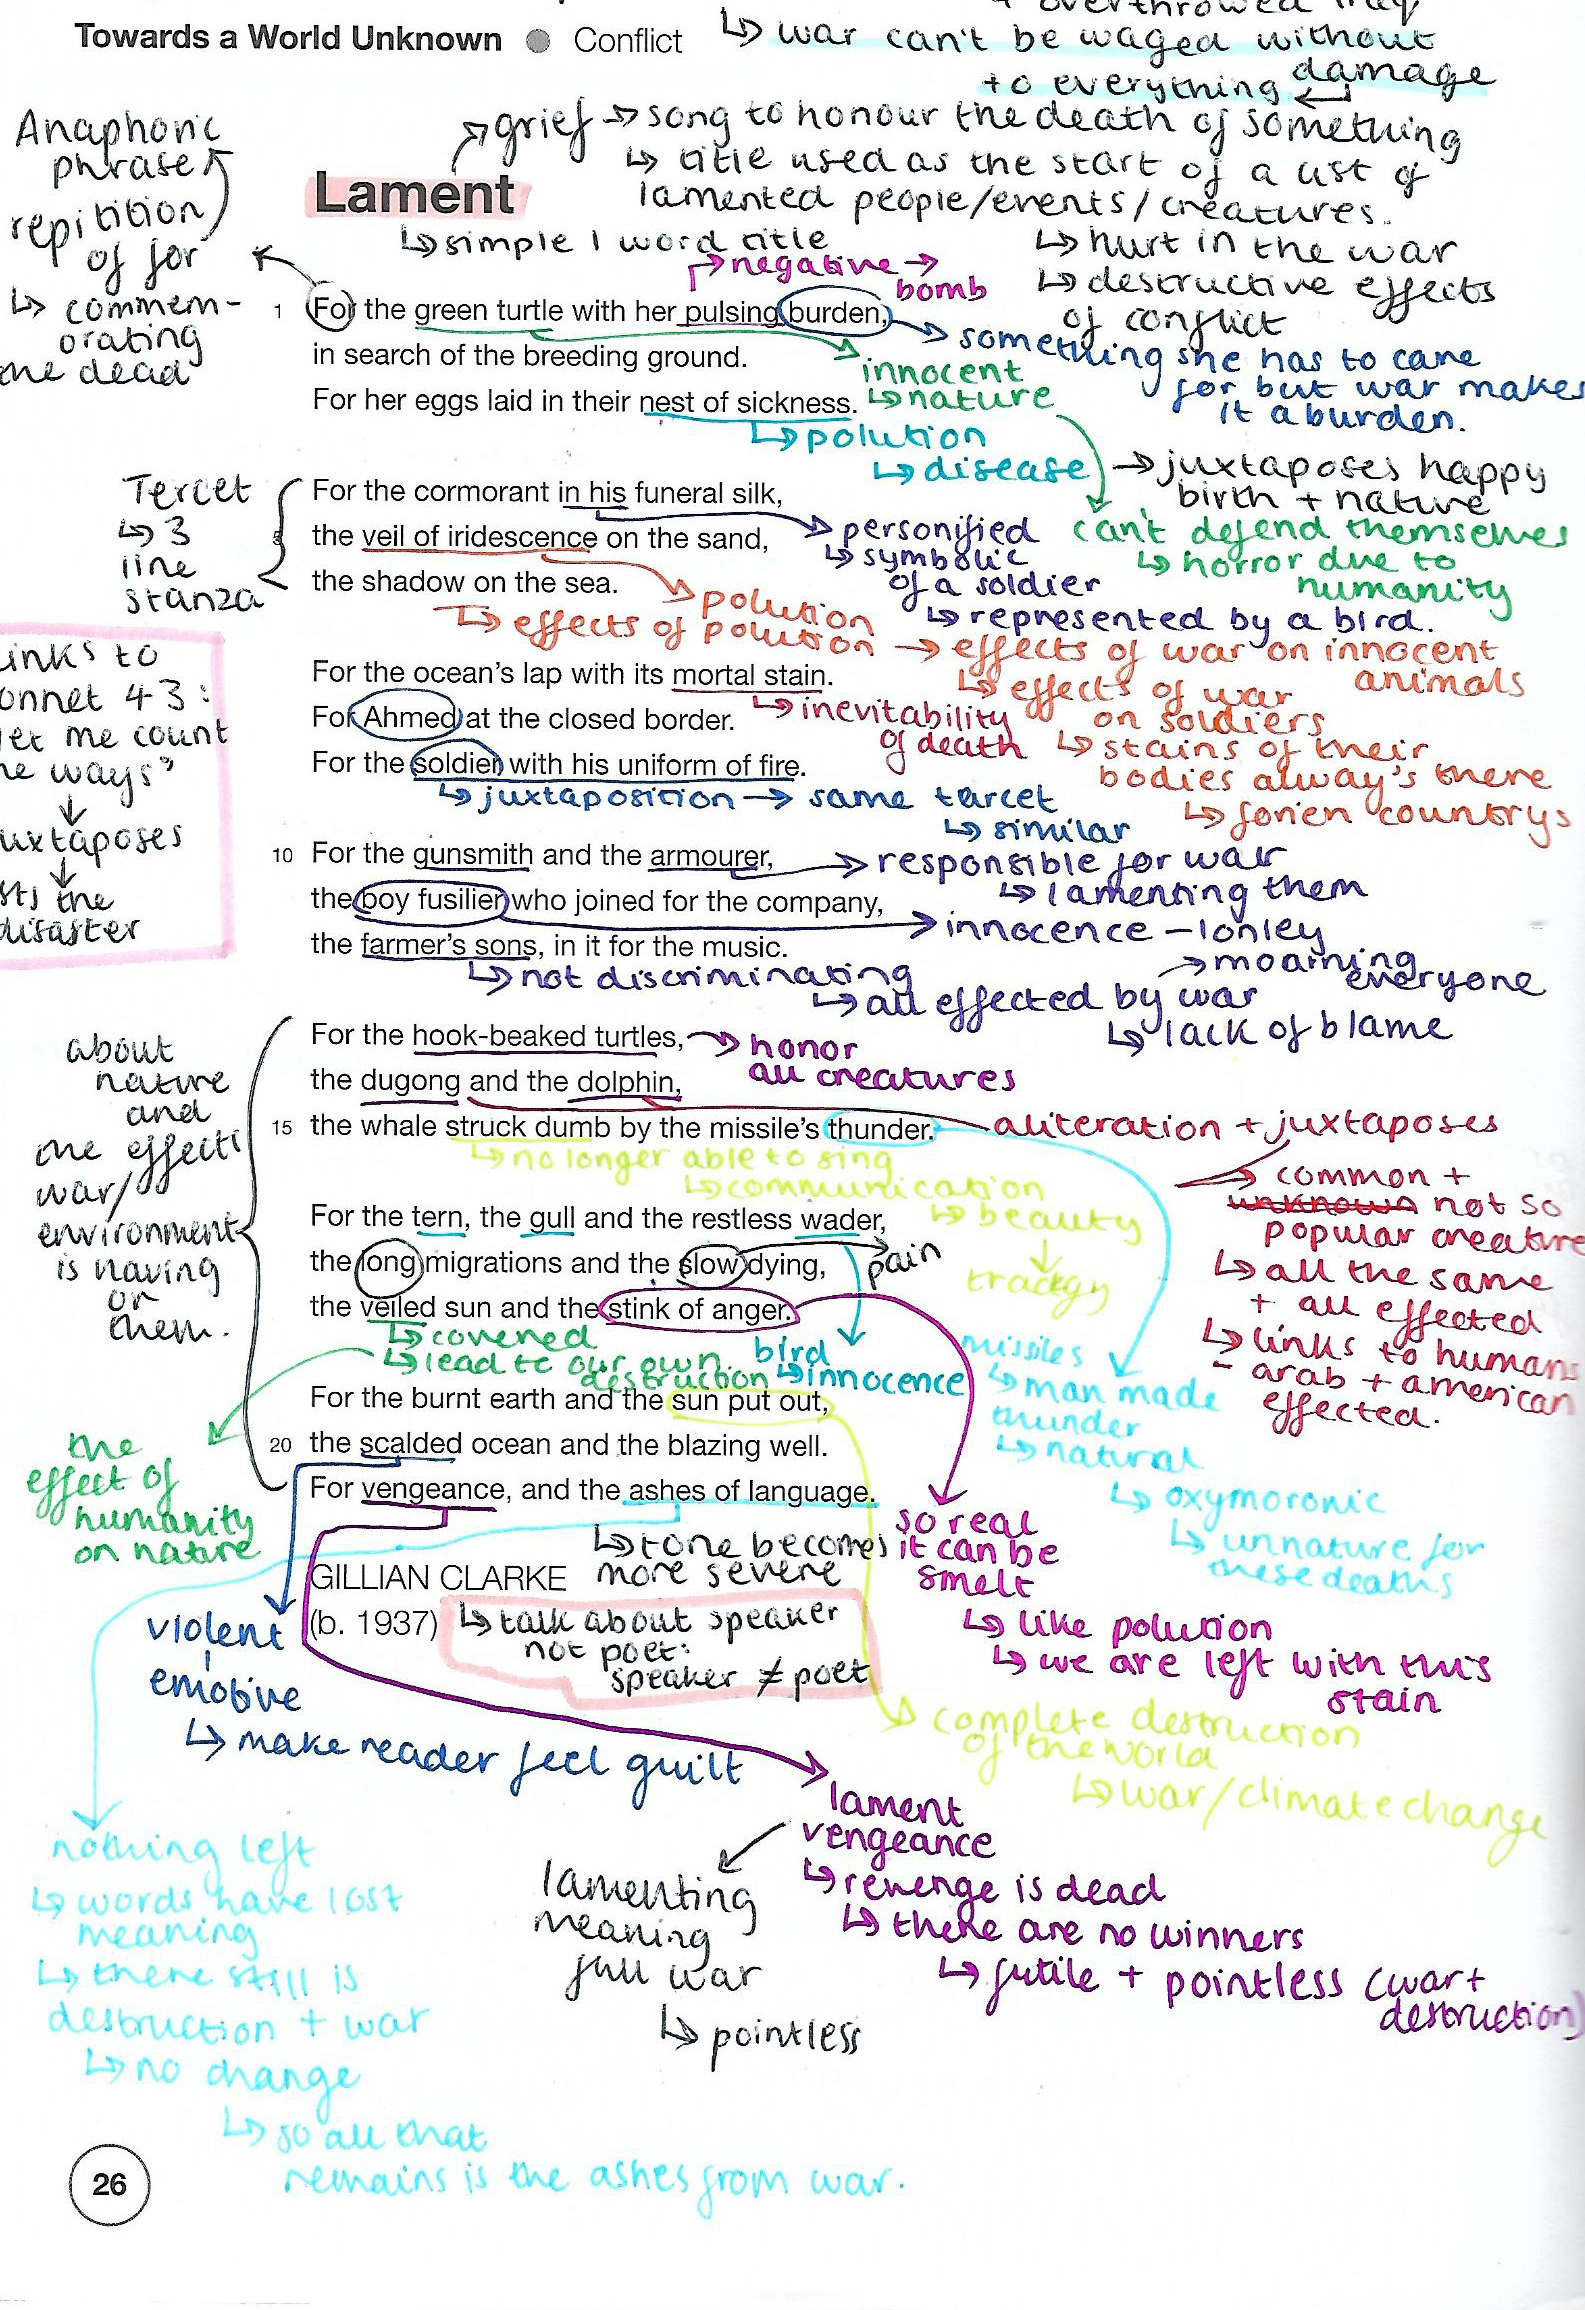 Towards a World Unknown ● Conflict
↳ war can't be waged without
damage
to everything
Anaphoric
phrase
repitition
of for
↳ commem-
orating
the dead
grief → song to honour the death of something
↳ title used as the start of a list of
lamented people/events/creatures.
↳ hurt in the war
↳ destructive effects
of conflict
Lament
↳ simple 1 word title
negative →
bomb
1 For the green turtle with her pulsing burden,
in search of the breeding ground.
For her eggs laid in their nest of sickness.
something she has to care
for but war makes
it a burden.
innocent
↳ nature
↳ polution
↳ disease
→ juxtaposes happy
birth + nature
can't defend themselves
↳ horror due to
humanity
Tercet
↳ 3
line
stanza
For the cormorant in his funeral silk,
the veil of iridescence on the sand,
the shadow on the sea.
personified
↳ symbolic
of a soldier
↳ represented by a bird.
polution
↳ effects of polution → effects of war on innocent
animals
↳ effects of war
on soldiers
↳ stains of their
bodies alway's there
↳ forien countrys
inks to
onnet 43:
et me count
he ways"
↓
uxtaposes
↓
sts the
disaster
For the ocean's lap with its mortal stain.
For Ahmed at the closed border.
For the soldier with his uniform of fire.
↳ inevitability
of death
↳ juxtaposition → same tercet
↳ similar
10 For the gunsmith and the armourer,
the boy fusilier who joined for the company,
the farmer's sons, in it for the music.
responsible for war
↳ lamenting them
innocence - lonley
↳ not discriminating
↳ all effected by war
→ moarning
everyone
↳ lack of blame
about
nature
and
the effect
war/
environment
is having
on
them.
For the hook-beaked turtles,
the dugong and the dolphin,
15 the whale struck dumb by the missile's thunder.
honor
all creatures
aliteration + juxtaposes
common +
unknown not so
popular creature
↳ all the same
+ all effected
↳ links to humans
- arab + american
effected.
↳ no longer able to sing
↳ communication
↳ beauty
↓
tradegy
For the tern, the gull and the restless wader,
the long migrations and the slow dying,
the veiled sun and the stink of anger.
pain
↳ covered
↳ lead to our own
destruction
bird
↳ innocence
missiles
↳ man made
thunder
↳ natural
↳ oxymoronic
↳ unnature for
these deaths
For the burnt earth and the sun put out,
20 the scalded ocean and the blazing well.
For vengeance, and the ashes of language.
the
effect of
humanity
on nature
so real
it can be
smelt
↳ like polution
↳ we are left with this
stain
↳ tone becomes
more severe
GILLIAN CLARKE
(b. 1937)
↳ talk about speaker
not poet:
speaker ≠ poet
violent
emotive
↳ make reader feel guilt
complete destruction
of the world
↳ war/climate change
lament
vengeance
↳ revenge is dead
↳ there are no winners
↳ futile + pointless (war +
destruction)
lamenting
meaning
full war
↳ pointless
nothing left
↳ words have lost
meaning
↳ there still is
destruction + war
↳ no change
↳ so all that
remains is the ashes from war.
26